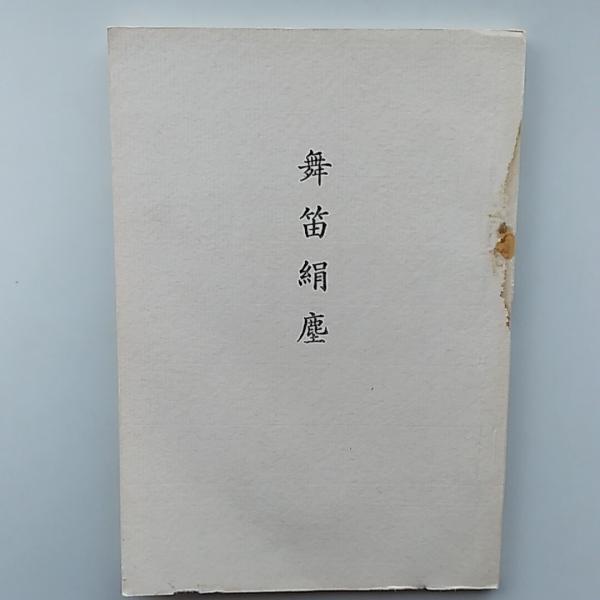 舞笛絹塵